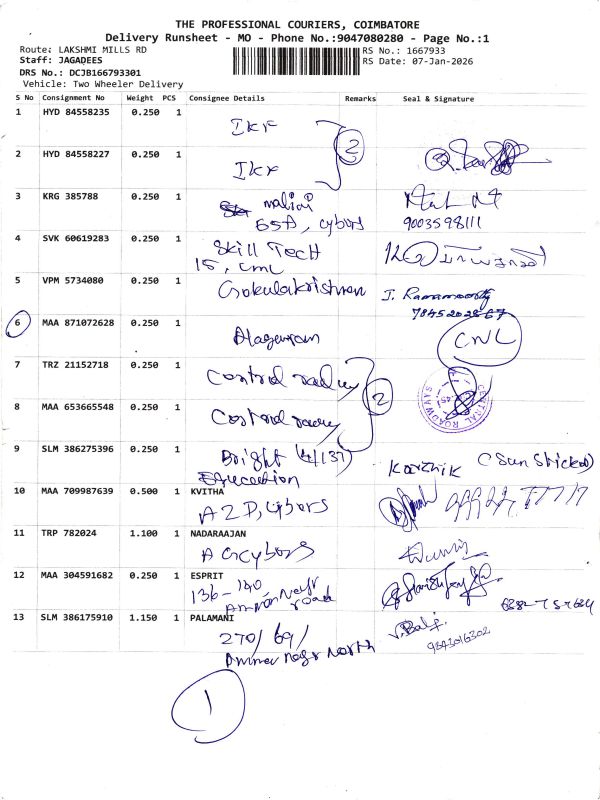 THE PROFESSIONAL COURIERS, COIMBATORE
Delivery Runsheet - MO - Phone No.:9047080280 - Page No.:1
Route: LAKSHMI MILLS RD
RS No.: 1667933
Staff: JAGADEES
RS Date: 07-Jan-2026
DRS No.: DCJB166793301
Vehicle: Two Wheeler Delivery
S No Consignment No Weight PCS Consignee Details Remarks Seal & Signature
1 HYD 84558235 0.250 1
IKF
2
2 HYD 84558227 0.250 1
IKF
3 KRG 385788 0.250 1 malini
65A, cybors
9003598111
4 SVK 60619283 0.250 1
Skill Tech
15, CML
5 VPM 5734080 0.250 1
Gokulakrishnan
J. Ramamoorthy
6 MAA 871072628 0.250 1
Alagersam
CNL
7 TRZ 21152718 0.250 1
Control
2
CENTRAL ROADWAYS
8 MAA 653665548 0.250 1
9 SLM 386275396 0.250 1
Bright (4/137)
KARTHIK
10 MAA 709987639 0.500 1 KVITHA
A2D, cybors
11 TRP 782024 1.100 1 NADARAAJAN
12 MAA 304591682 0.250 1 ESPRIT
136-140
road
13 SLM 386175910 1.150 1 PALAMANI
270/69/
V. Balj.
9843016302
North
1